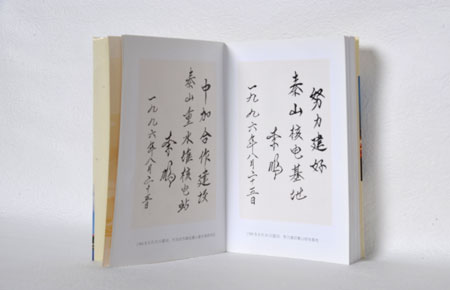 中加合作建设
秦山重水堆核电站
李鹏
一九九六年八月二十五日
努力建好
秦山核电基地
李鹏
一九九六年八月二十五日